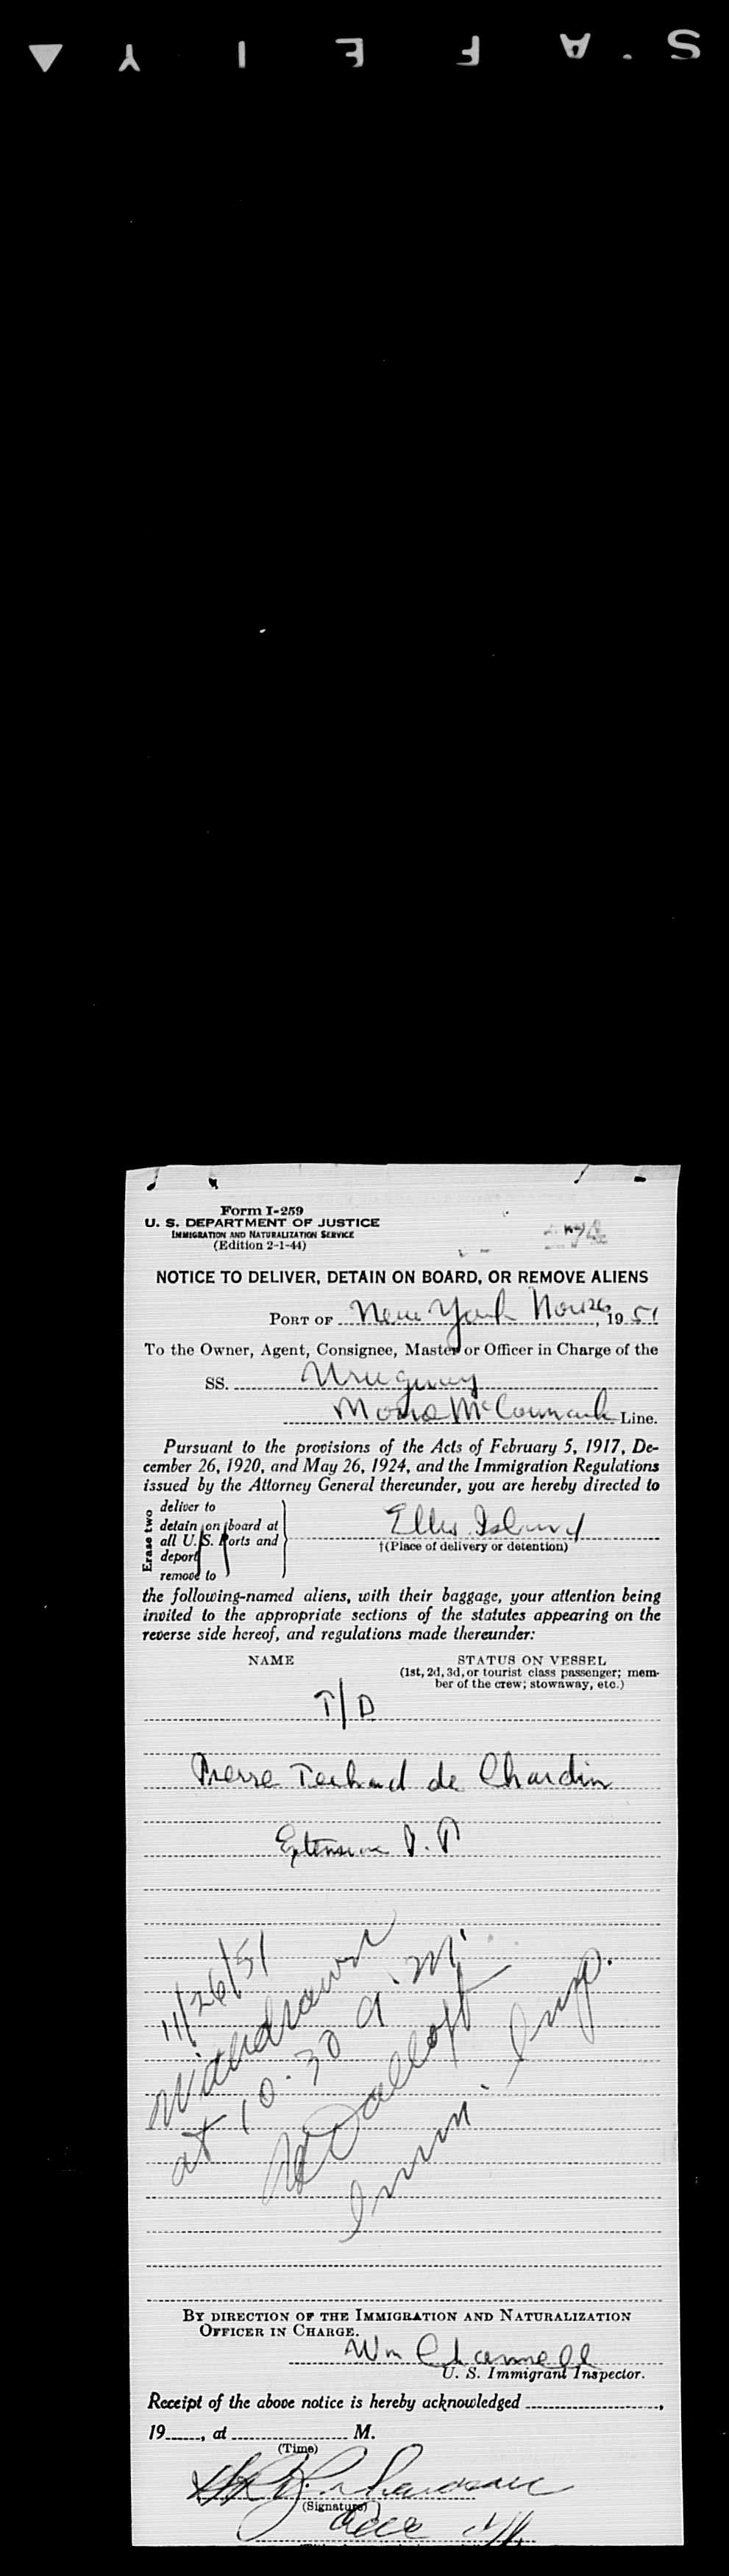 SAFETY
Form I-259
U. S. DEPARTMENT OF JUSTICE
IMMIGRATION AND NATURALIZATION SERVICE
(Edition 2-1-44)
NOTICE TO DELIVER, DETAIN ON BOARD, OR REMOVE ALIENS
PORT OF New York Nov 26, 19 51
To the Owner, Agent, Consignee, Master or Officer in Charge of the
SS. Uruguay
McCormack Line.
Pursuant to the provisions of the Acts of February 5, 1917, De-
cember 26, 1920, and May 26, 1924, and the Immigration Regulations
issued by the Attorney General thereunder, you are hereby directed to
Erase two
deliver to
detain on board at
all U. S. Ports and
deport
remove to
Ellis Island
†(Place of delivery or detention)
the following-named aliens, with their baggage, your attention being
invited to the appropriate sections of the statutes appearing on the
reverse side hereof, and regulations made thereunder:
NAME STATUS ON VESSEL
(1st, 2d, 3d, or tourist class passenger; mem-
ber of the crew; stowaway, etc.)
T/D
Pierre Teilhard de Chardin
Extension
11/26/51
Withdrawn
at 10:30 a.m.
Imm. Insp.
BY DIRECTION OF THE IMMIGRATION AND NATURALIZATION
OFFICER IN CHARGE.
Wm
U. S. Immigrant Inspector.
Receipt of the above notice is hereby acknowledged ,
19 , at M.
(Time)
(Signature)